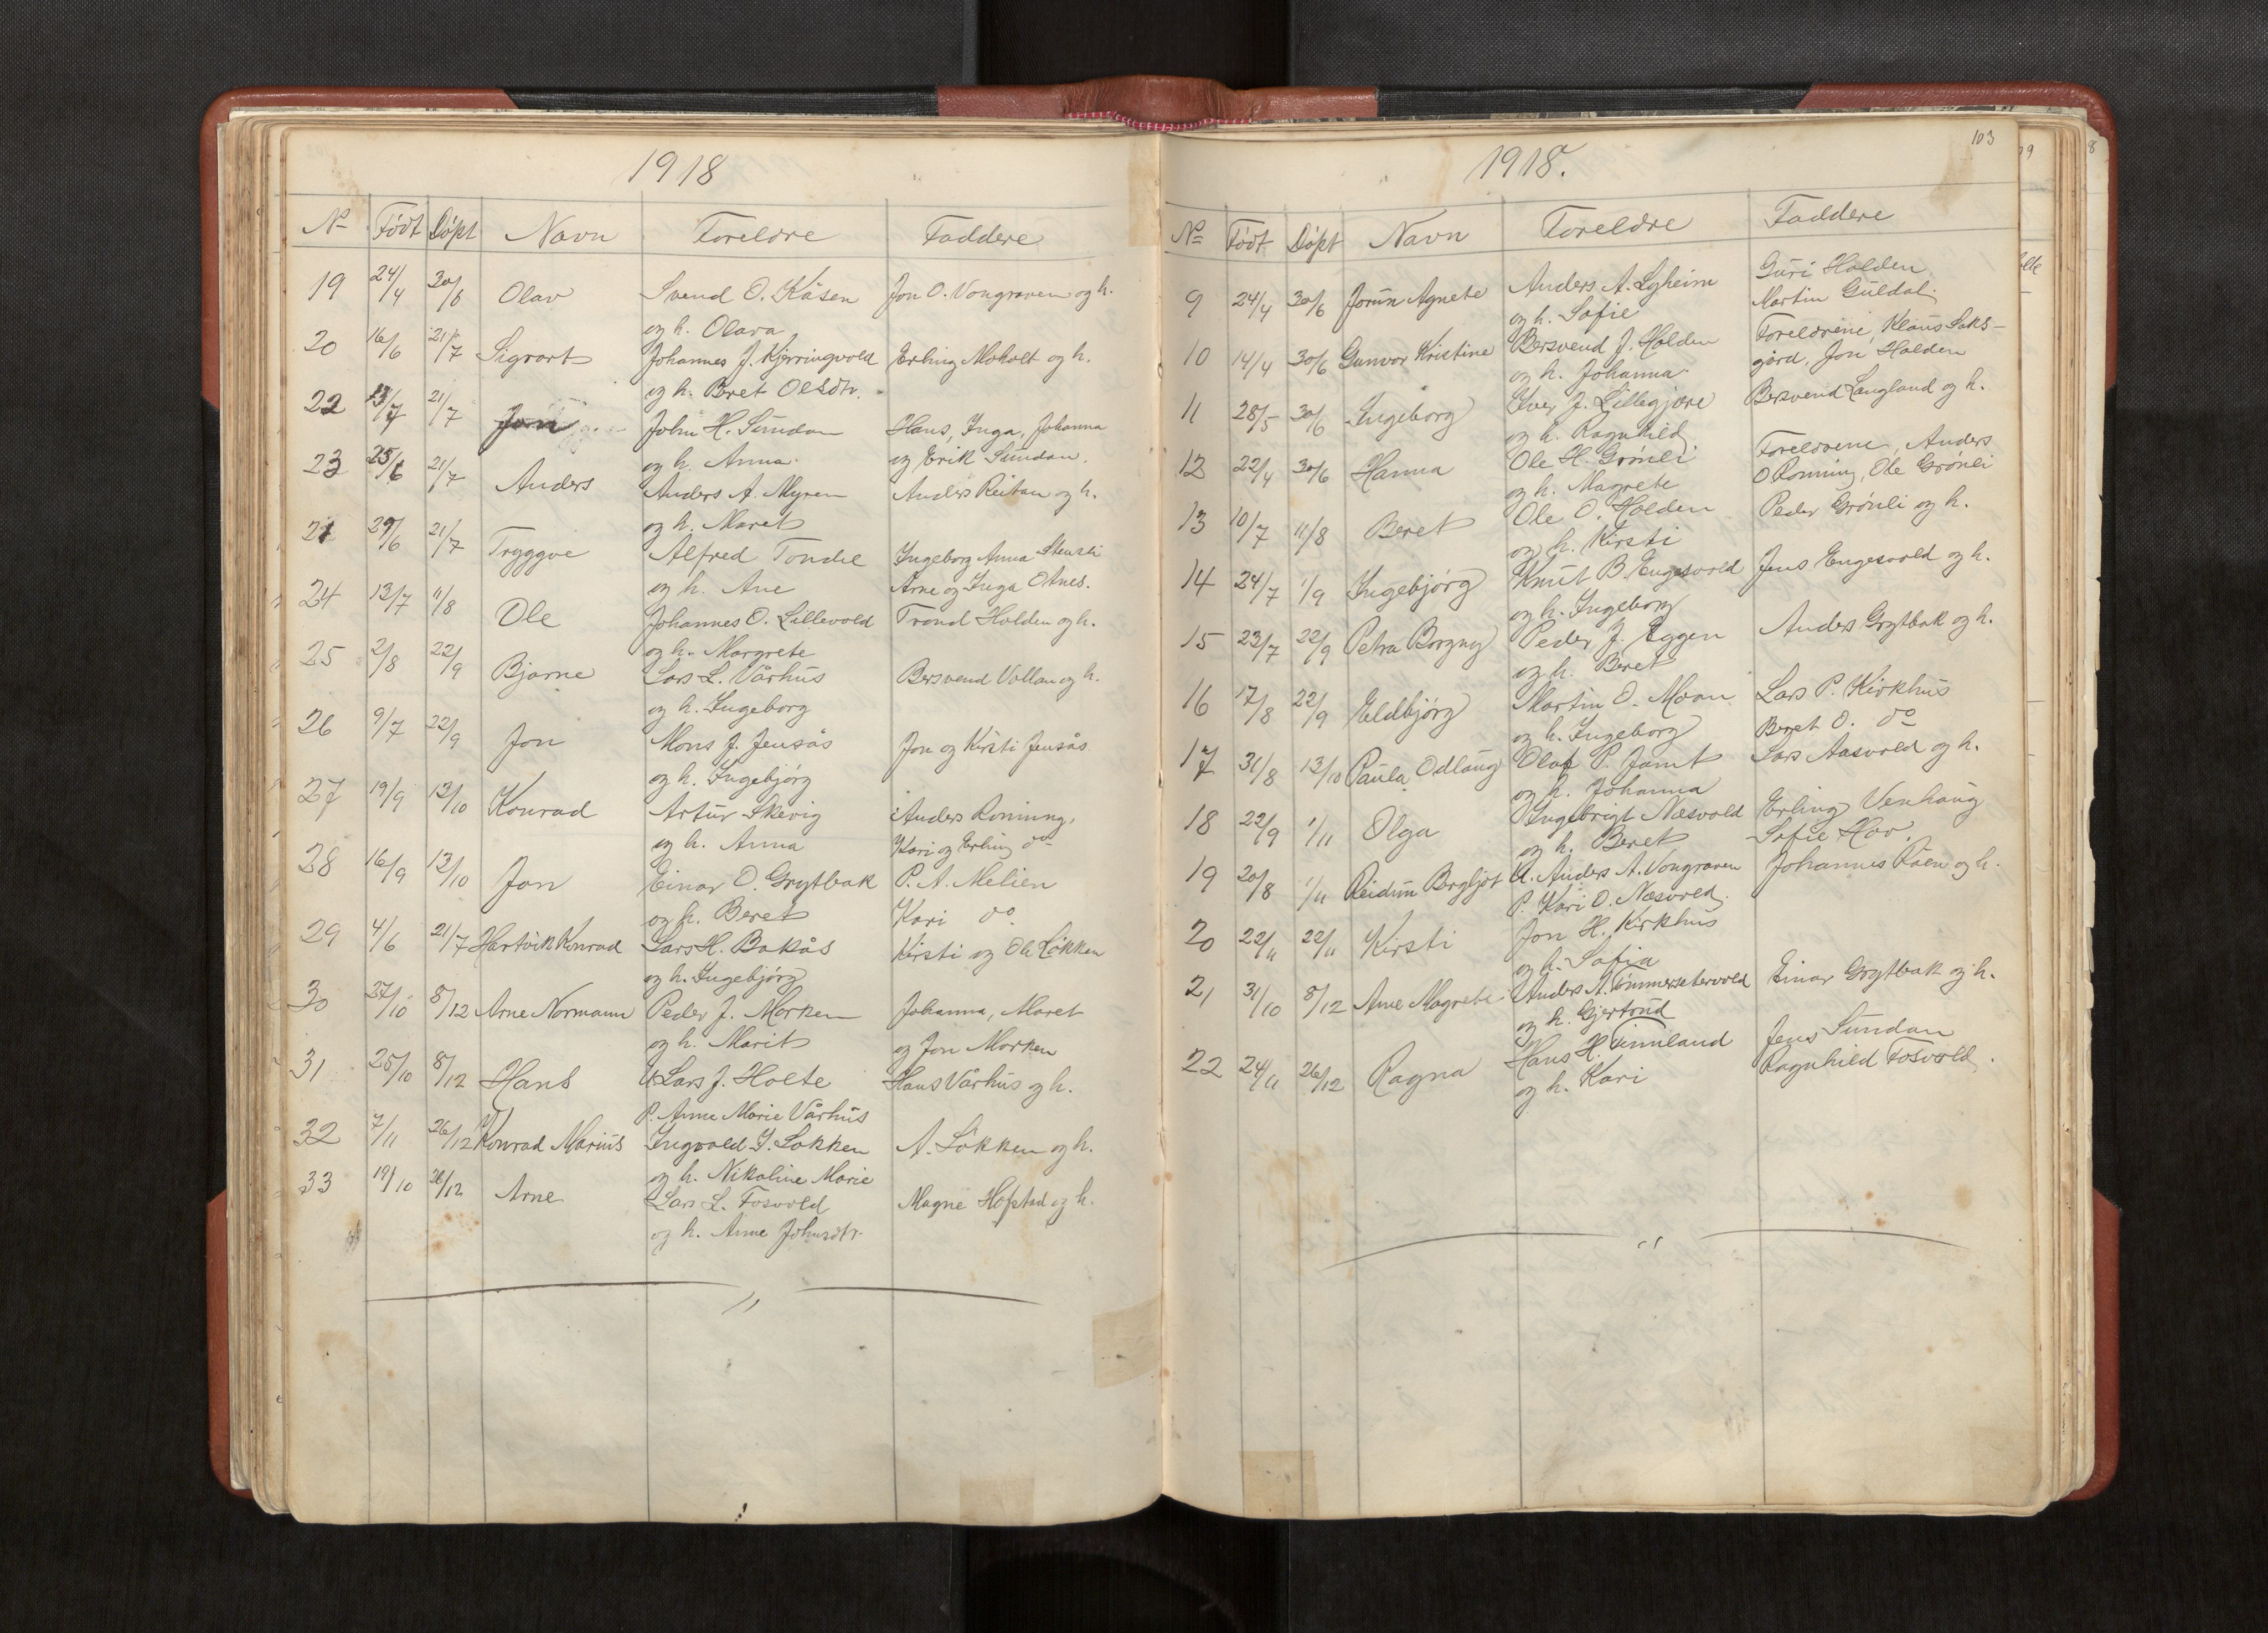 1918
No Født Døpt Navn Foreldre Faddere
19 24/4 30/6 Olav Svend O. Kåsen Jon O. Vongraven og h.
og h. Olava
20 16/6 21/7 Sigvart Johannes J. Kjerringvold Erling Moholt og h.
og h. Beret Olsdtr.
22 13/7 21/7 Jon John H. Sundan Hans, Inga, Johanna
og h. Anna og Erik Sundan.
23 25/6 21/7 Anders Anders A. Myren Anders Reitan og h.
og h. Maret
21 29/6 21/7 Tryggve Alfred Tondel Ingeborg Anna Stensli
og h. Ane Arne og Inga Otnes.
24 13/7 11/8 Ole Johannes O. Lillevold Trond Holden og h.
og h. Margrete
25 2/8 22/9 Bjarne Lars L. Vårhus Bersvend Vollan og h.
og h. Ingeborg
26 9/7 22/9 Jon Mons J. Jensås Jon og Kirsti Jensås
og h. Ingebjørg
27 19/9 13/10 Konrad Artur Skevig Anders Ronning,
og h. Anna Kari og Erling do
28 16/9 13/10 Jon Einar O. Grytbak P. A. Melien
og h. Beret Kari do
29 4/6 21/7 Hartvik Konrad Lars H. Bakås Kirsti og Ole Løkken
og h. Ingebjørg
30 27/10 8/12 Arne Normann Peder J. Morken Johanna, Maret
og h. Marit og Jon Morken
31 25/10 8/12 Hans U. Lars J. Holte Hans Vårhus og h.
P. Anne Marie Vårhus
32 7/11 26/12 Konrad Marius Ingvald I. Løkken A. Løkken og h.
og h. Nikoline Marie
33 19/10 26/12 Arne Lars L. Fosvold Magne Hofstad og h.
og h. Anne Johnsdtr.
103
1918.
No Født Døpt Navn Foreldre Faddere
9 24/4 30/6 Jorun Agnete Anders A. Lyheim Guri Holden
og h. Sofie Martin Guldal.
10 14/4 30/6 Gunvor Kristine Bersvend J. Holden Foreldrene, Klaus Saks-
og h. Johanna gård, Jon Holden
11 28/5 30/6 Ingeborg Iver J. Lillegjære Bersvend Langland og h.
og h. Ragnhild.
12 22/4 30/6 Hanna Ole H. Grønli Foreldrene, Anders
og h. Magrete O Ronning, Ole Grønli
13 10/7 11/8 Beret Ole O. Holden Peder Grønli og h.
og h. Kirsti
14 24/7 1/9 Ingebjørg Knut B. Engesvold Jens Engesvold og h.
og h. Ingeborg
15 23/7 22/9 Petra Borgny Peder J. Eggen Anders Grytbak og h.
og h. Beret
16 17/8 22/9 Eldbjørg Martin O. Moan Lars P. Kirkhus
og h. Ingeborg Beret O. do
17 31/8 13/10 Paula Odlaug Olaf P. Jamt Lars Aasvold og h.
og h. Johanna
18 22/9 1/11 Olga Ingebrigt Næsvold Erling Venhaug
og h. Beret Sofie Hov.
19 20/8 1/11 Reidun Bergljot U. Anders A. Vongraven Johannes Råen og h.
P. Kari O. Næsvold.
20 22/11 22/11 Kirsti Jon H. Kirkhus
og h. Sofia
21 31/10 8/12 Ane Magrete Anders A. Tømmersetervold Einar Grytbak og h.
og h. Gjertrud
22 24/11 26/12 Ragna Hans H. Finnland Jens Sundan
og h. Kari Ragnhild Fosvold.